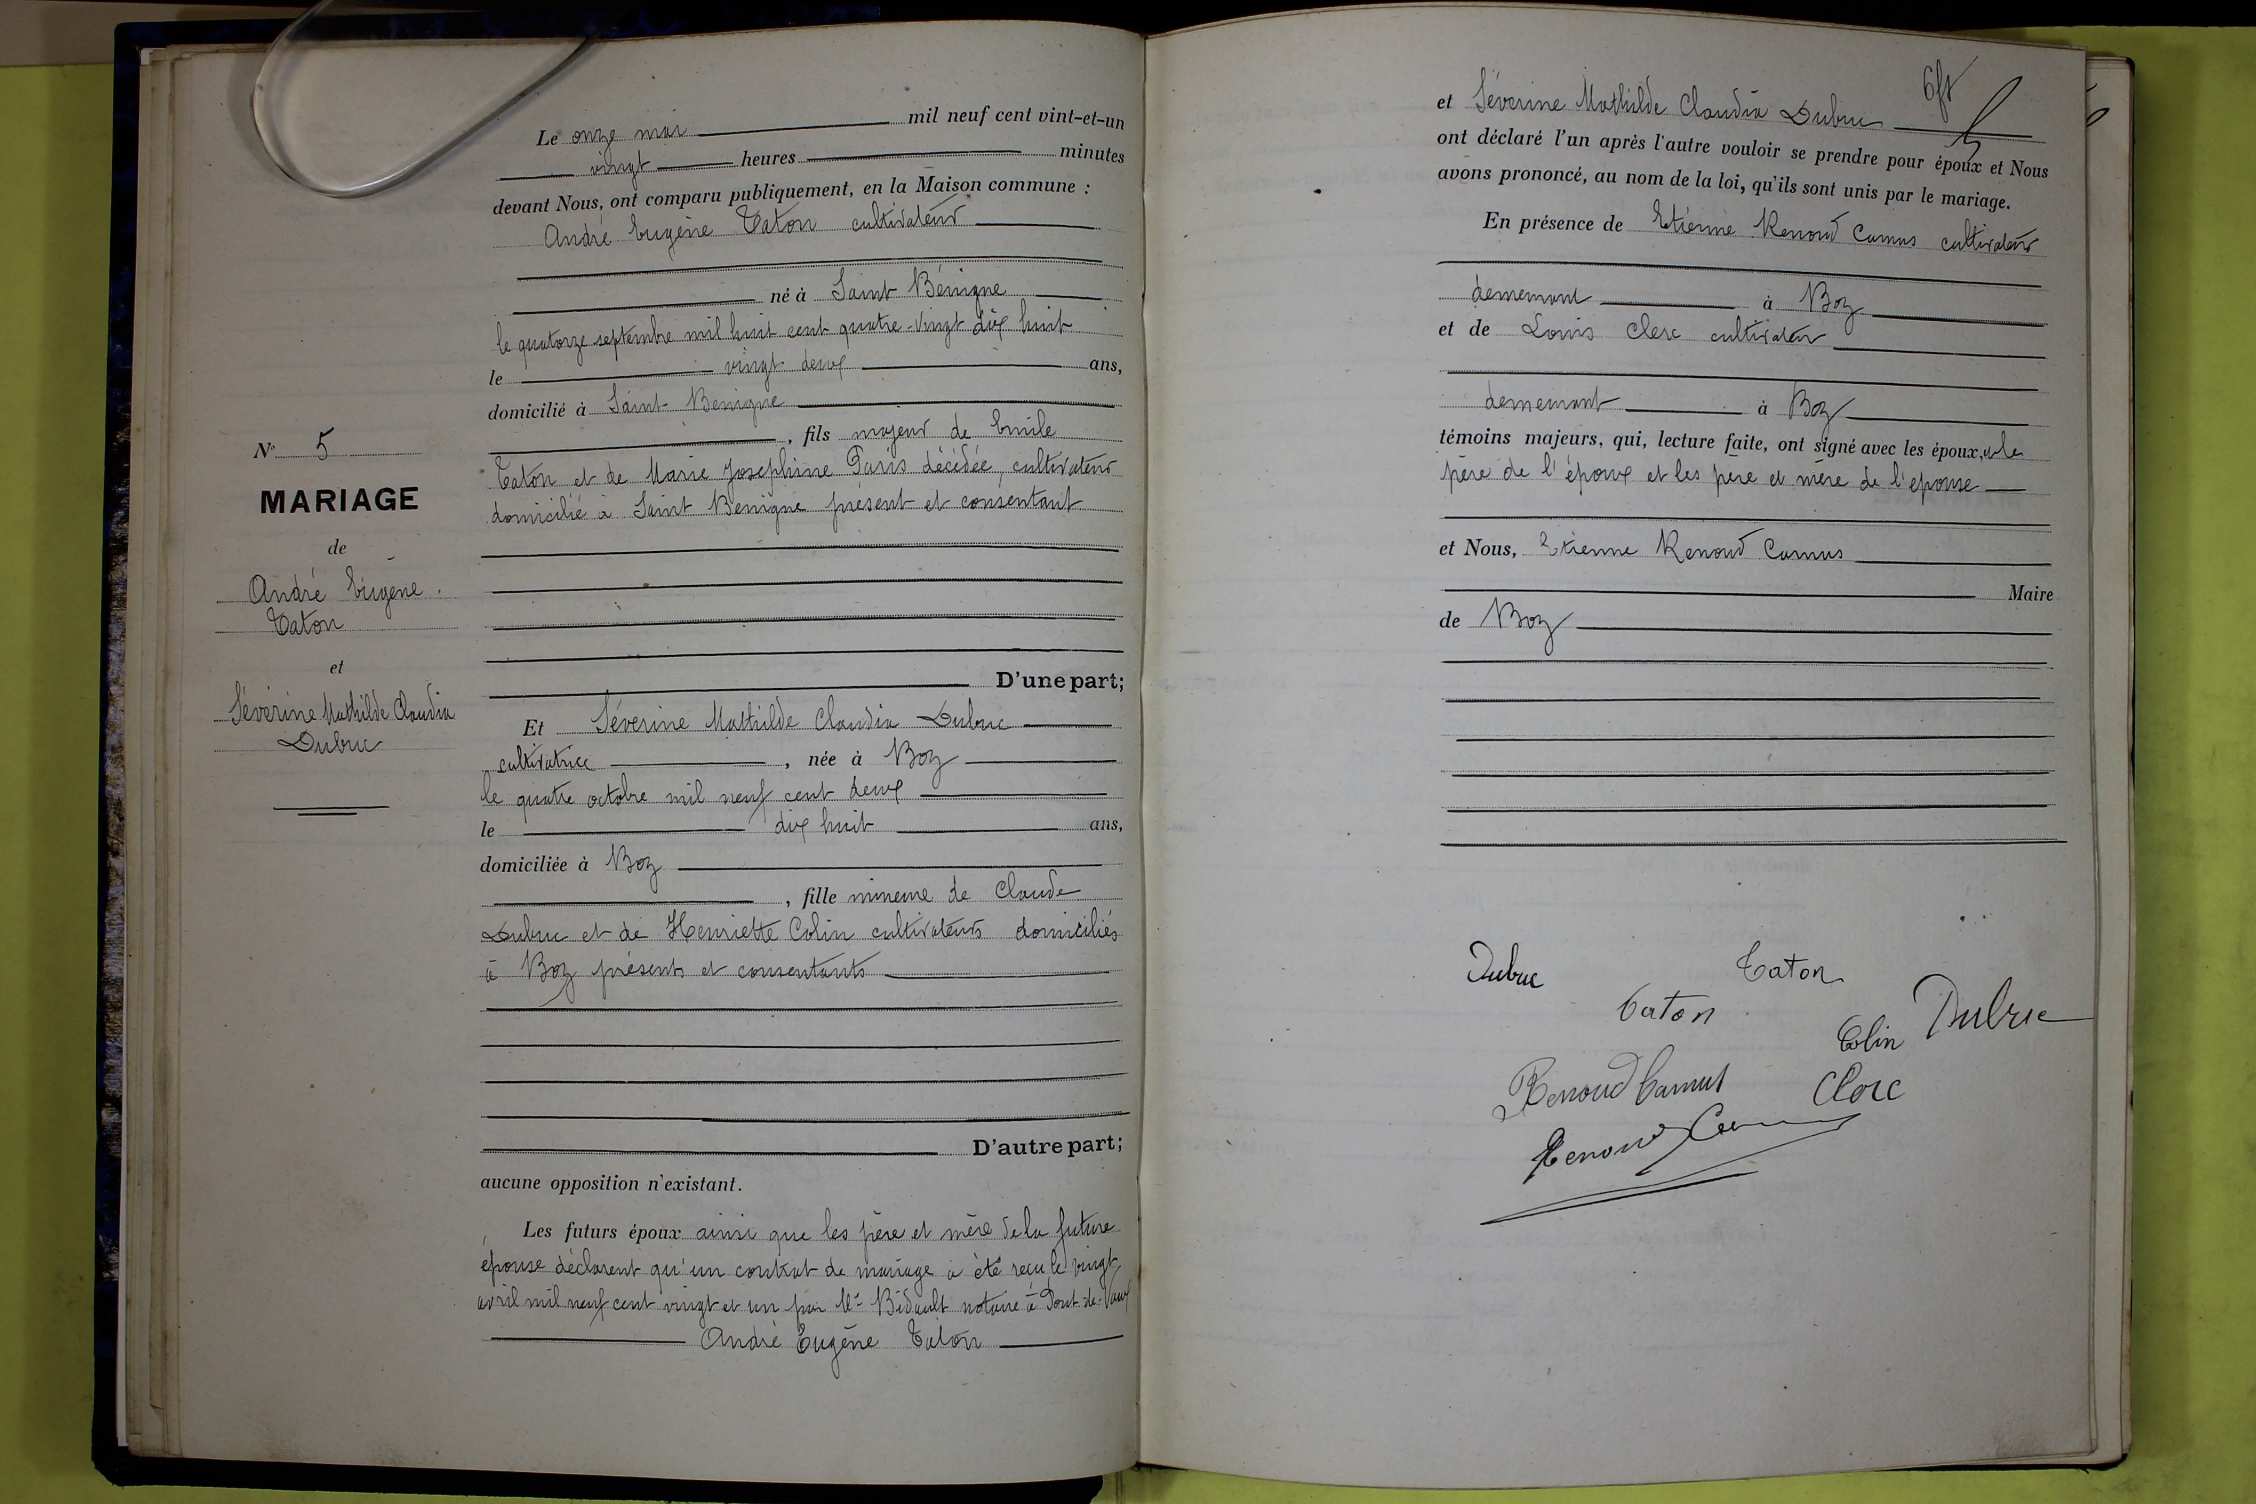 Le onze mai mil neuf cent vint-et-un
vingt heures minutes
devant Nous, ont comparu publiquement, en la Maison commune :
André Eugène Taton cultivateur
né à Saint Bénigne
le quatorze septembre mil huit cent quatre-vingt dix huit
le vingt deux ans,
domicilié à Saint-Bénigne
, fils majeur de Emile
Taton et de Marie Joséphine Paris décédée, cultivateur
domicilié à Saint Bénigne présent et consentant
D'une part;
N° 5
MARIAGE
de
André Eugène
Taton
et
Séverine Mathilde Claudia
Dubuc
Et Séverine Mathilde Claudia Dubuc
cultivatrice , née à Boz
le quatre octobre mil neuf cent deux
le dix huit ans,
domiciliée à Boz
, fille mineure de Claude
Dubuc et de Henriette Colin cultivateurs domiciliés
à Boz présents et consentants
D'autre part;
aucune opposition n'existant.
Les futurs époux ainsi que les père et mère de la future
épouse déclarent qu'un contrat de mariage a été reçu le vingt
avril mil neuf cent vingt et un par Me Bidault notaire à Pont-de-Vaux
André Eugène Taton
et Séverine Mathilde Claudia Dubuc
ont déclaré l'un après l'autre vouloir se prendre pour époux et Nous
avons prononcé, au nom de la loi, qu'ils sont unis par le mariage.
En présence de Etienne Renoud Camus cultivateur
demeurant à Boz
et de Louis Clerc cultivateur
demeurant à Boz
témoins majeurs, qui, lecture faite, ont signé avec les époux, et le
père de l'époux et les père et mère de l'épouse
et Nous, Etienne Renoud Camus
Maire
de Boz
Dubuc Taton
Taton
Colin Dubuc
Renoud Camus Clerc
Renoud